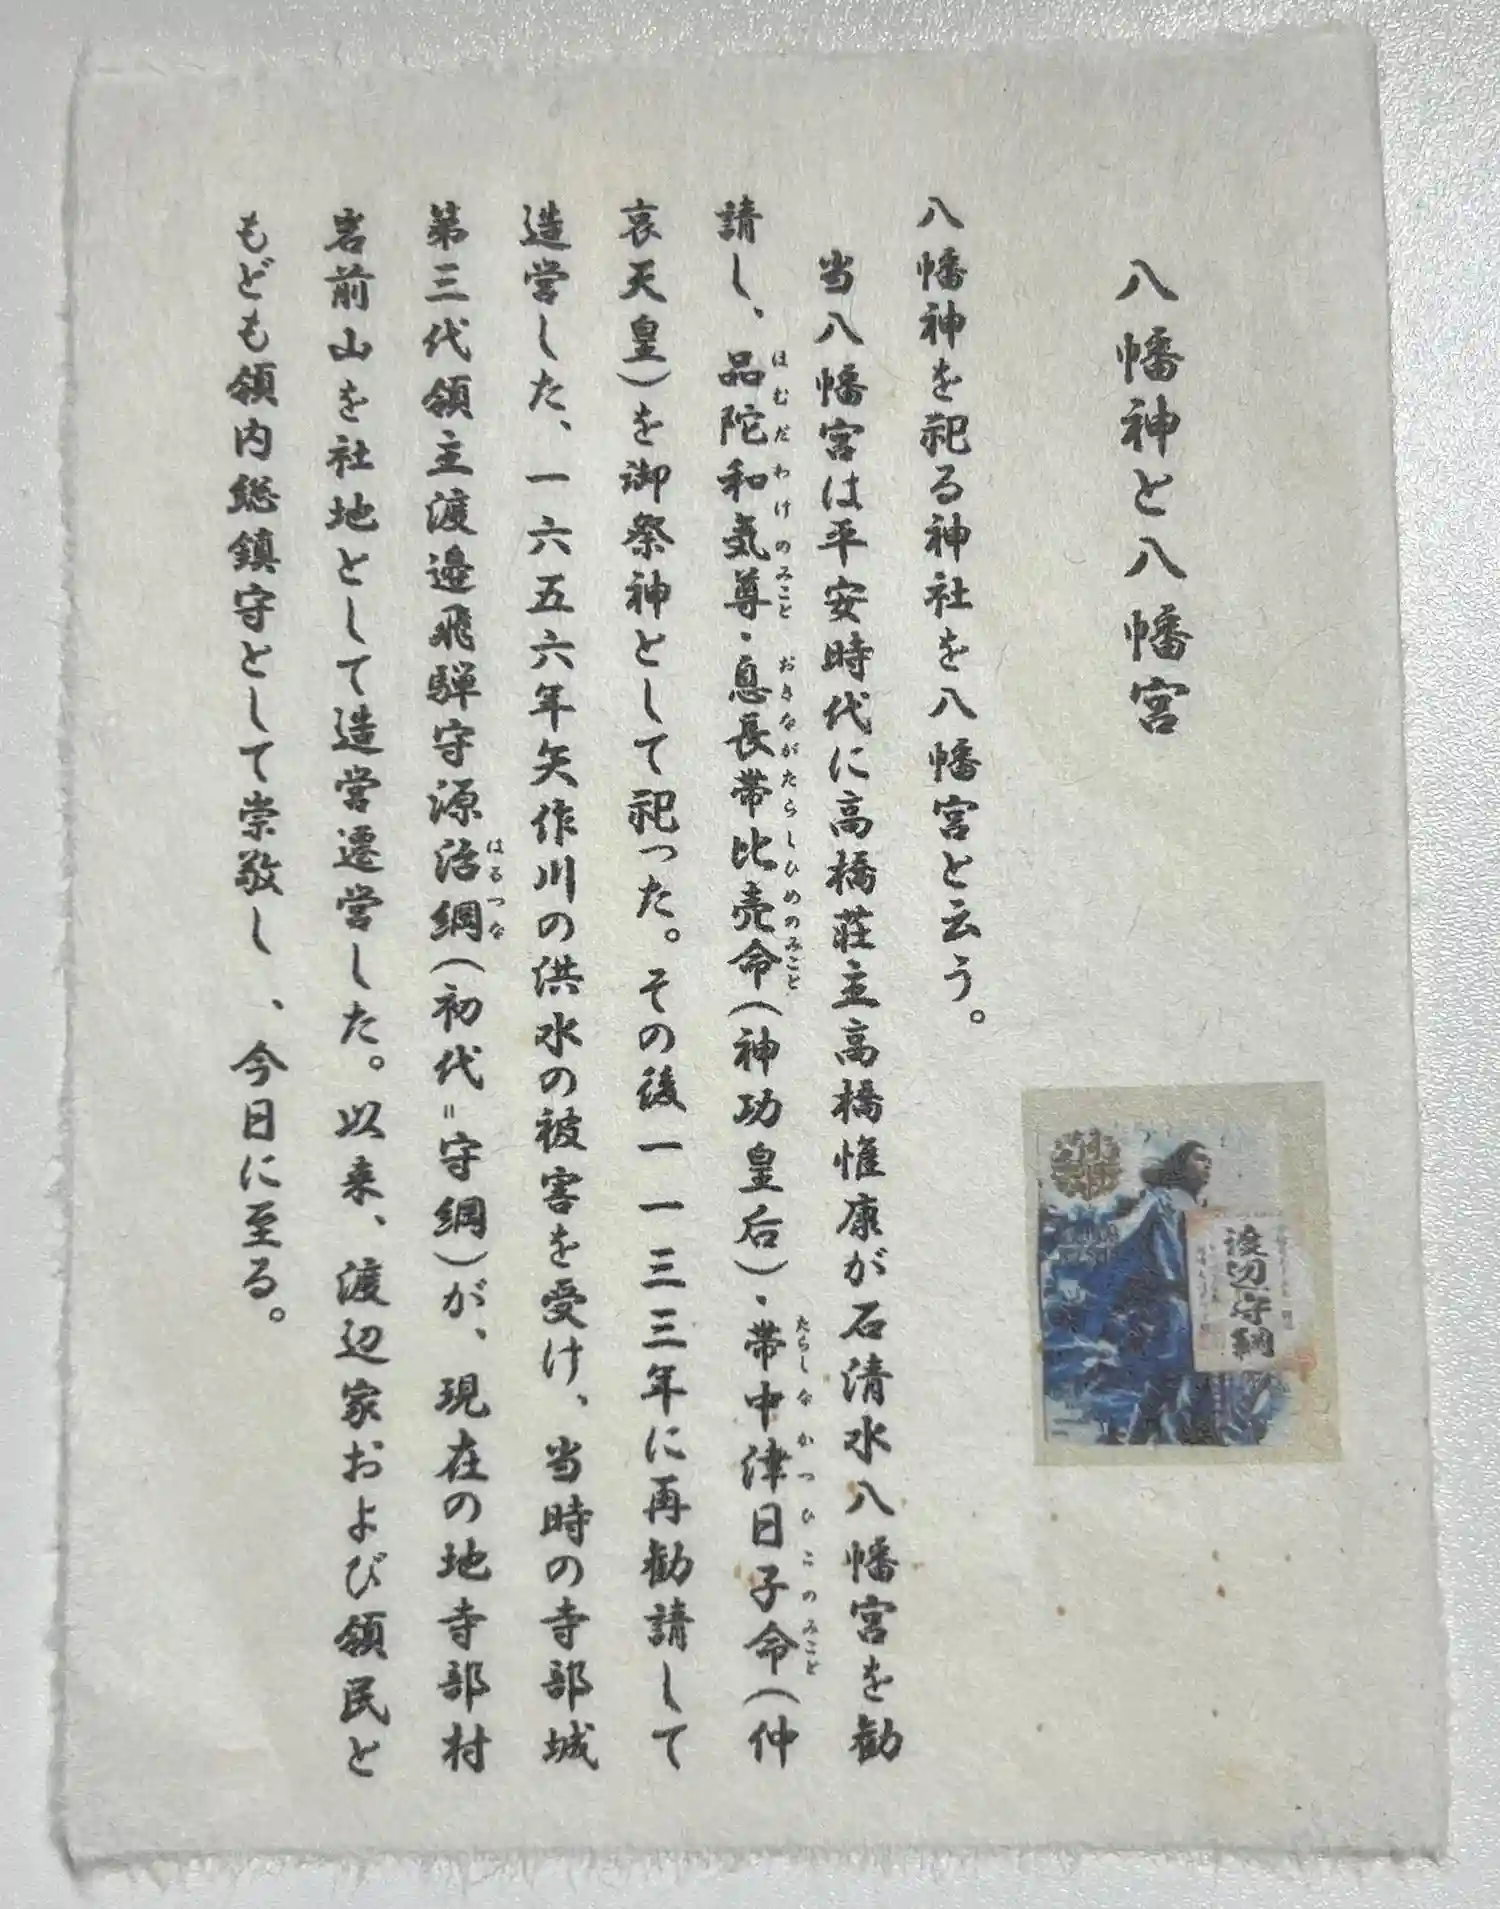 八幡神と八幡宮
八幡神を祀る神社を八幡宮と云う。
当八幡宮は平安時代に高橋荘主高橋惟康が石清水八幡宮を勧
請し、品陀和気尊・息長帯比売命(神功皇后)・帯中津日子命(仲
はむだわけのみこと おきながたらしひめのみこと たらしなかつひこのみこと
哀天皇)を御祭神として祀った。その後一一三三年に再勧請して
造営した、一六五六年矢作川の洪水の被害を受け、当時の寺部城
第三代領主渡邉飛騨守源治綱(初代=守綱)が、現在の地寺部村
はるつな
岩前山を社地として造営遷営した。以来、渡辺家および領民と
もども領内総鎮守として崇敬し、今日に至る。
渡辺守綱